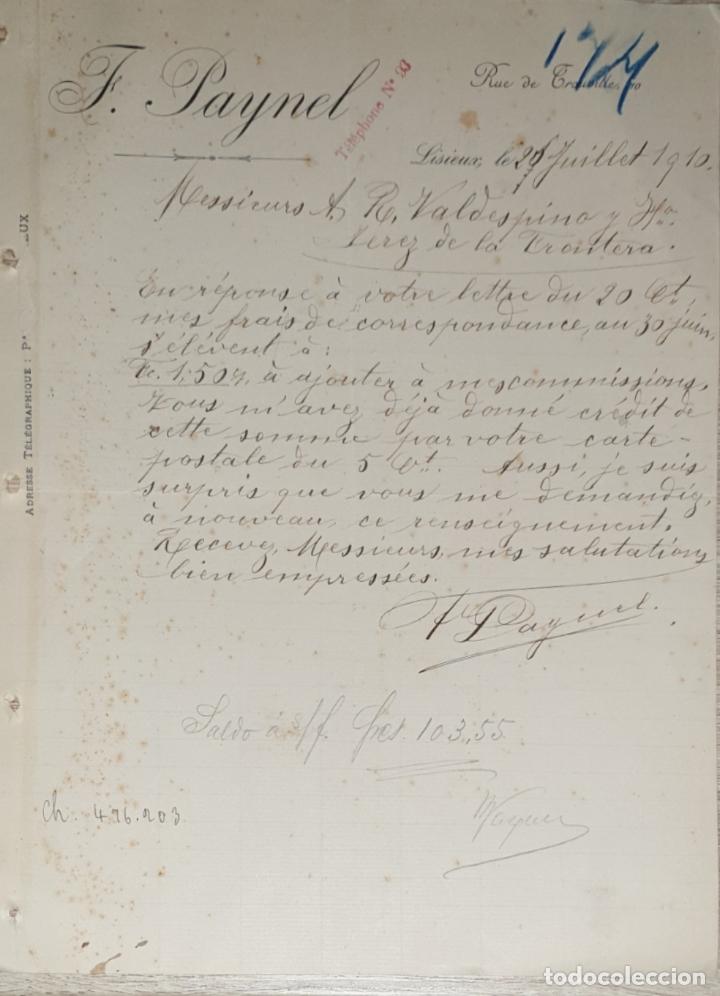 F. Paynel
Téléphone Nº 93
174
Rue de Trouville, 10
Lisieux, le Juillet 1910.
Messieurs A. R. Valdespino y Hº
Jerez de la Frontera.
En réponse à votre lettre du 20 Ct,
mes frais de correspondance, au 30 juin,
s'élèvent à:
Fc. 1,50, à ajouter à mes commissions.
Vous m'avez déjà donné crédit de
cette somme par votre carte-
postale du 5 Ct. Aussi, je suis
surpris que vous me demandiez,
à nouveau, ce renseignement.
Recevez, Messieurs, mes salutations
bien empressées.
F Paynel.
Saldo à s/f. fcs. 103,55
Ch. 476.203
ADRESSE TÉLÉGRAPHIQUE : P
UX
todocoleccion